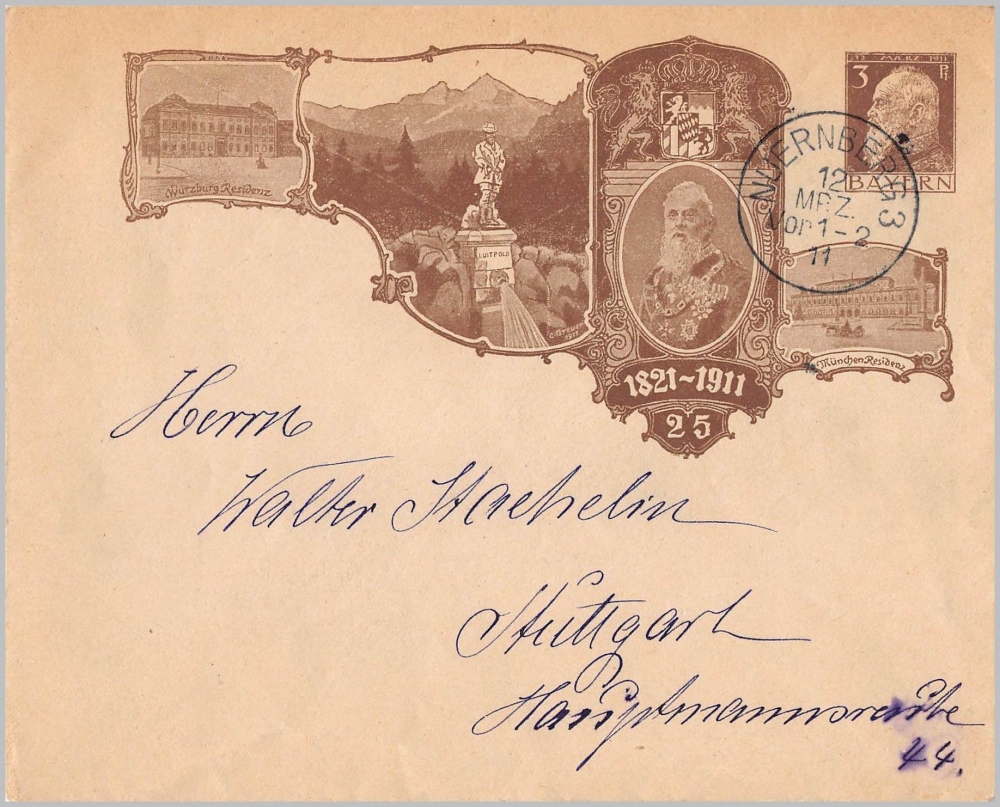 12 MÄRZ 1911
3 Pf
BAYERN
NUERNBERG 3
12
MRZ.
Vor 1-2
11
Würzburg Residenz
LUITPOLD
München Residenz
1821~1911
25
Herrn
Walter Staehelin
Stuttgart
Hauptmannsreute
44.